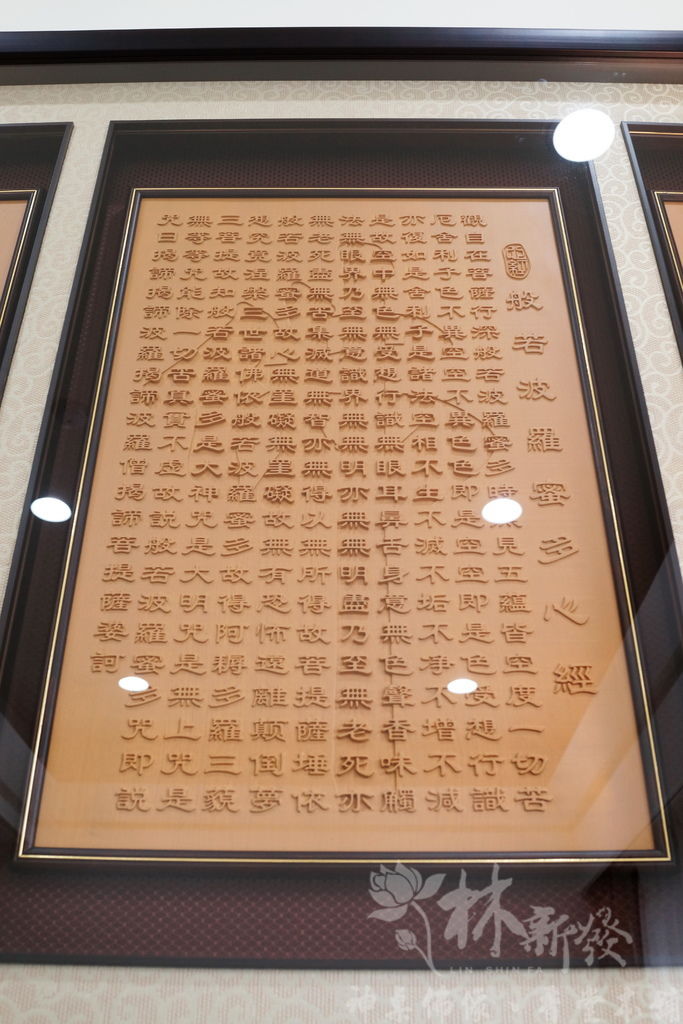 般若波羅蜜多心經
觀自在菩薩行深般若波羅蜜多時照見五蘊皆空度一切苦
厄舍利子色不異空空不異色色即是空空即是色受想行識
亦復如是舍利子是諸法空相不生不滅不垢不淨不增不減
是故空中無色無受想行識無眼耳鼻舌身意無色聲香味觸
法無眼界乃至無意識界無無明亦無無明盡乃至無老死亦
無老死盡無苦集滅道無智亦無得以無所得故菩提薩埵依
般若波羅蜜多故心無罣礙無罣礙故無有恐怖遠離顛倒夢
想究竟涅槃三世諸佛依般若波羅蜜多故得阿耨多羅三藐
三菩提故知般若波羅蜜多是大神咒是大明咒是無上咒是
無等等咒能除一切苦真實不虛故說般若波羅蜜多咒即說
咒曰揭諦揭諦波羅揭諦波羅僧揭諦菩提薩婆訶
林新發
LIN SHIN FA
神桌佛像